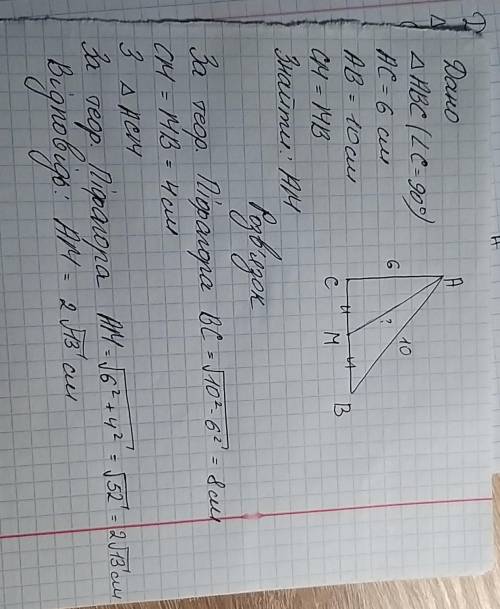 Дано
△ABC (∠C=90°)
AC = 6 см
AB = 10 см
CM = MB
Знайти: AM
A
6
10
?
C
4
M
4
B
Розв'язок
За теор. Піфагора BC = √10² - 6² = 8 см
CM = MB = 4 см
З △ ACM
За теор. Піфагора AM = √6² + 4² = √52 = 2√13 см
Відповідь: AM = 2√13 см